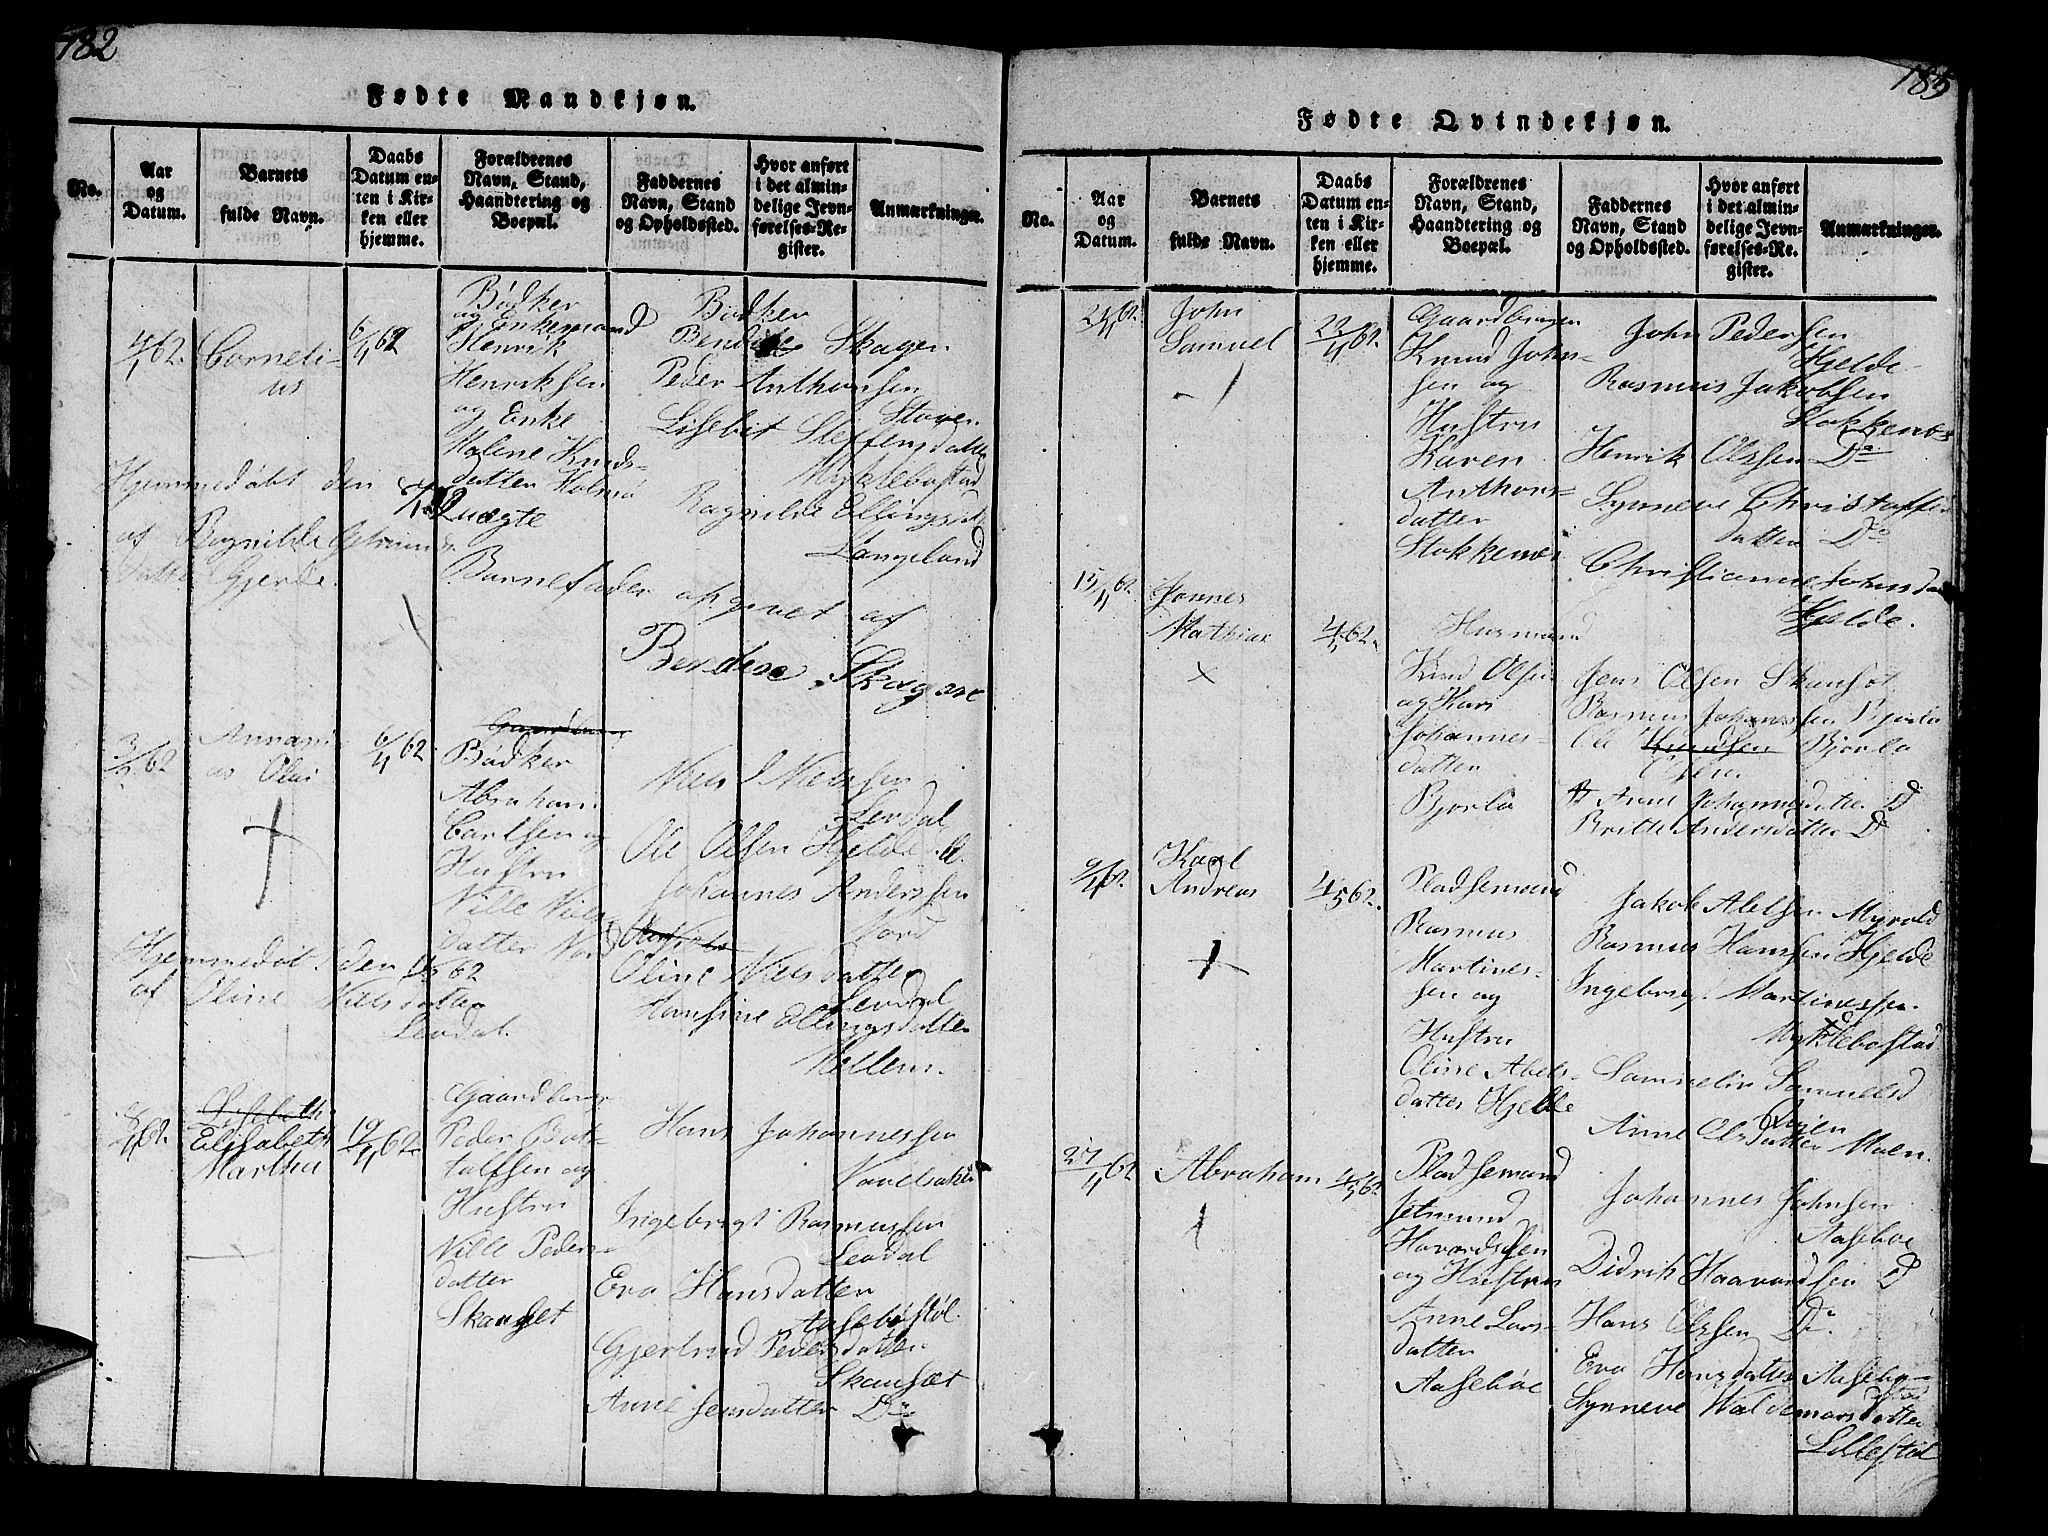 182
Fødte Mandkjøn.
No.
Aar
og
Datum.
Barnets
fulde Navn.
Daabs
Datum en-
ten i Kir-
ken eller
hjemme.
Forældrenes
Navn, Stand,
Haandtering og
Boepæl.
Faddernes
Navn, Stand
og Opholdssted.
Hvor anført
i det almin-
delige Jevn-
førelses-Re-
gister.
Anmærkninger.
4/1 62. Corneti-
us
6/4 62
Bødker
og Enkemand
Henrik
Henriksen
og Enke
Malene Knuds-
datter Holmø
Bødker
Skagen
Peder Anthonsen
Støven
Lisebet Steffensdatter
Myklebostad
Ragnilde Ellingsd
Langeland
Hjemmedøbt den
af Ragnilde
datter Gjerde.
Barnefader opgivet af
Bendine Skagene
3/3 62
Annani-
as Olai
6/4 62
Bødker
Abraham
Carlsen og
Hustru
Nille Niels
datter Nord
Niels Nielssen
Levdal
Ole Olsen Hjelde
Johannes Anderssen
Nord
Oline Nielsdatter
Levdal
Hansine Ellingsdatter
Mellem.
Hjemmedøbt den 62
af Oline Nielsdatter
Levdal.
62.
Lisebeth
Elisabeth
Martha
19/4 62
Gaardbruger
Peder Bot-
tolfsen og
Hustru
Nille Peders-
datter
Skanset
Hans Johannessen
Navelsaker
Ingebrigt Rasmussen
Levdal
Eva Hansdatter
Aasebøstøl.
Gjertrud Pedersdatter
Skanset
Anne Jensdatter Do
183
Fødte Qvindekjøn.
No.
Aar
og
Datum.
Barnets
fulde Navn.
Daabs
Datum en-
ten i Kir-
ken eller
hjemme.
Forældrenes
Navn, Stand,
Haandtering og
Boepæl.
Faddernes
Navn, Stand
og Opholdssted.
Hvor anført
i det almin-
delige Jevn-
førelses-Re-
gister.
Anmærkninger.
62.
John
Samuel
62.
Gaardbruger
Knud John-
sen og
Hustru
Karen
Anthons-
datter
Stokkenes
John Pedersen
Hjelde
Rasmus Jakobsen
Stokkenes
Henrik Olssen Do
Synneve Christoffer
datter Do
Christianne Johnsda
Hjelde.
15/4 62.
Jonnes
Mathias
4/5 62.
Husmand
Knud Olsen
og Kari
Johannes-
datter
Bjørlo
Jens Olsen Skanset
Rasmus Johanssen Bjørlo
Ole Knudsen Bjørlo
Olsen
Anne Johannesdatter D
Britte Andersdatter Do
62.
Karl
Andreas
4/5 62.
Pladsemand
Rasmus
Martines-
sen og
Hustru
Oline Abels-
datter Hjelde
Jakob Abelsen Myrold
Rasmus Hansen Hjelde
Ingebrigt Martinessen
Myklebostad
Samueline Samuelsd
Øien
Anne Olsdatter Moen.
27/4 62
Abraham
4/5 62
Pladsemand
Jetmund
Havardssen
og Hustru
Anne Lars-
datter
Aasebøe
Johannes Johnsen
Aasebøe
Didrik Haavardsen D
Hans Olssen Do.
Eva Hansdatter Aasebø-
Synneve Waldemarsdatter
Lillestøl